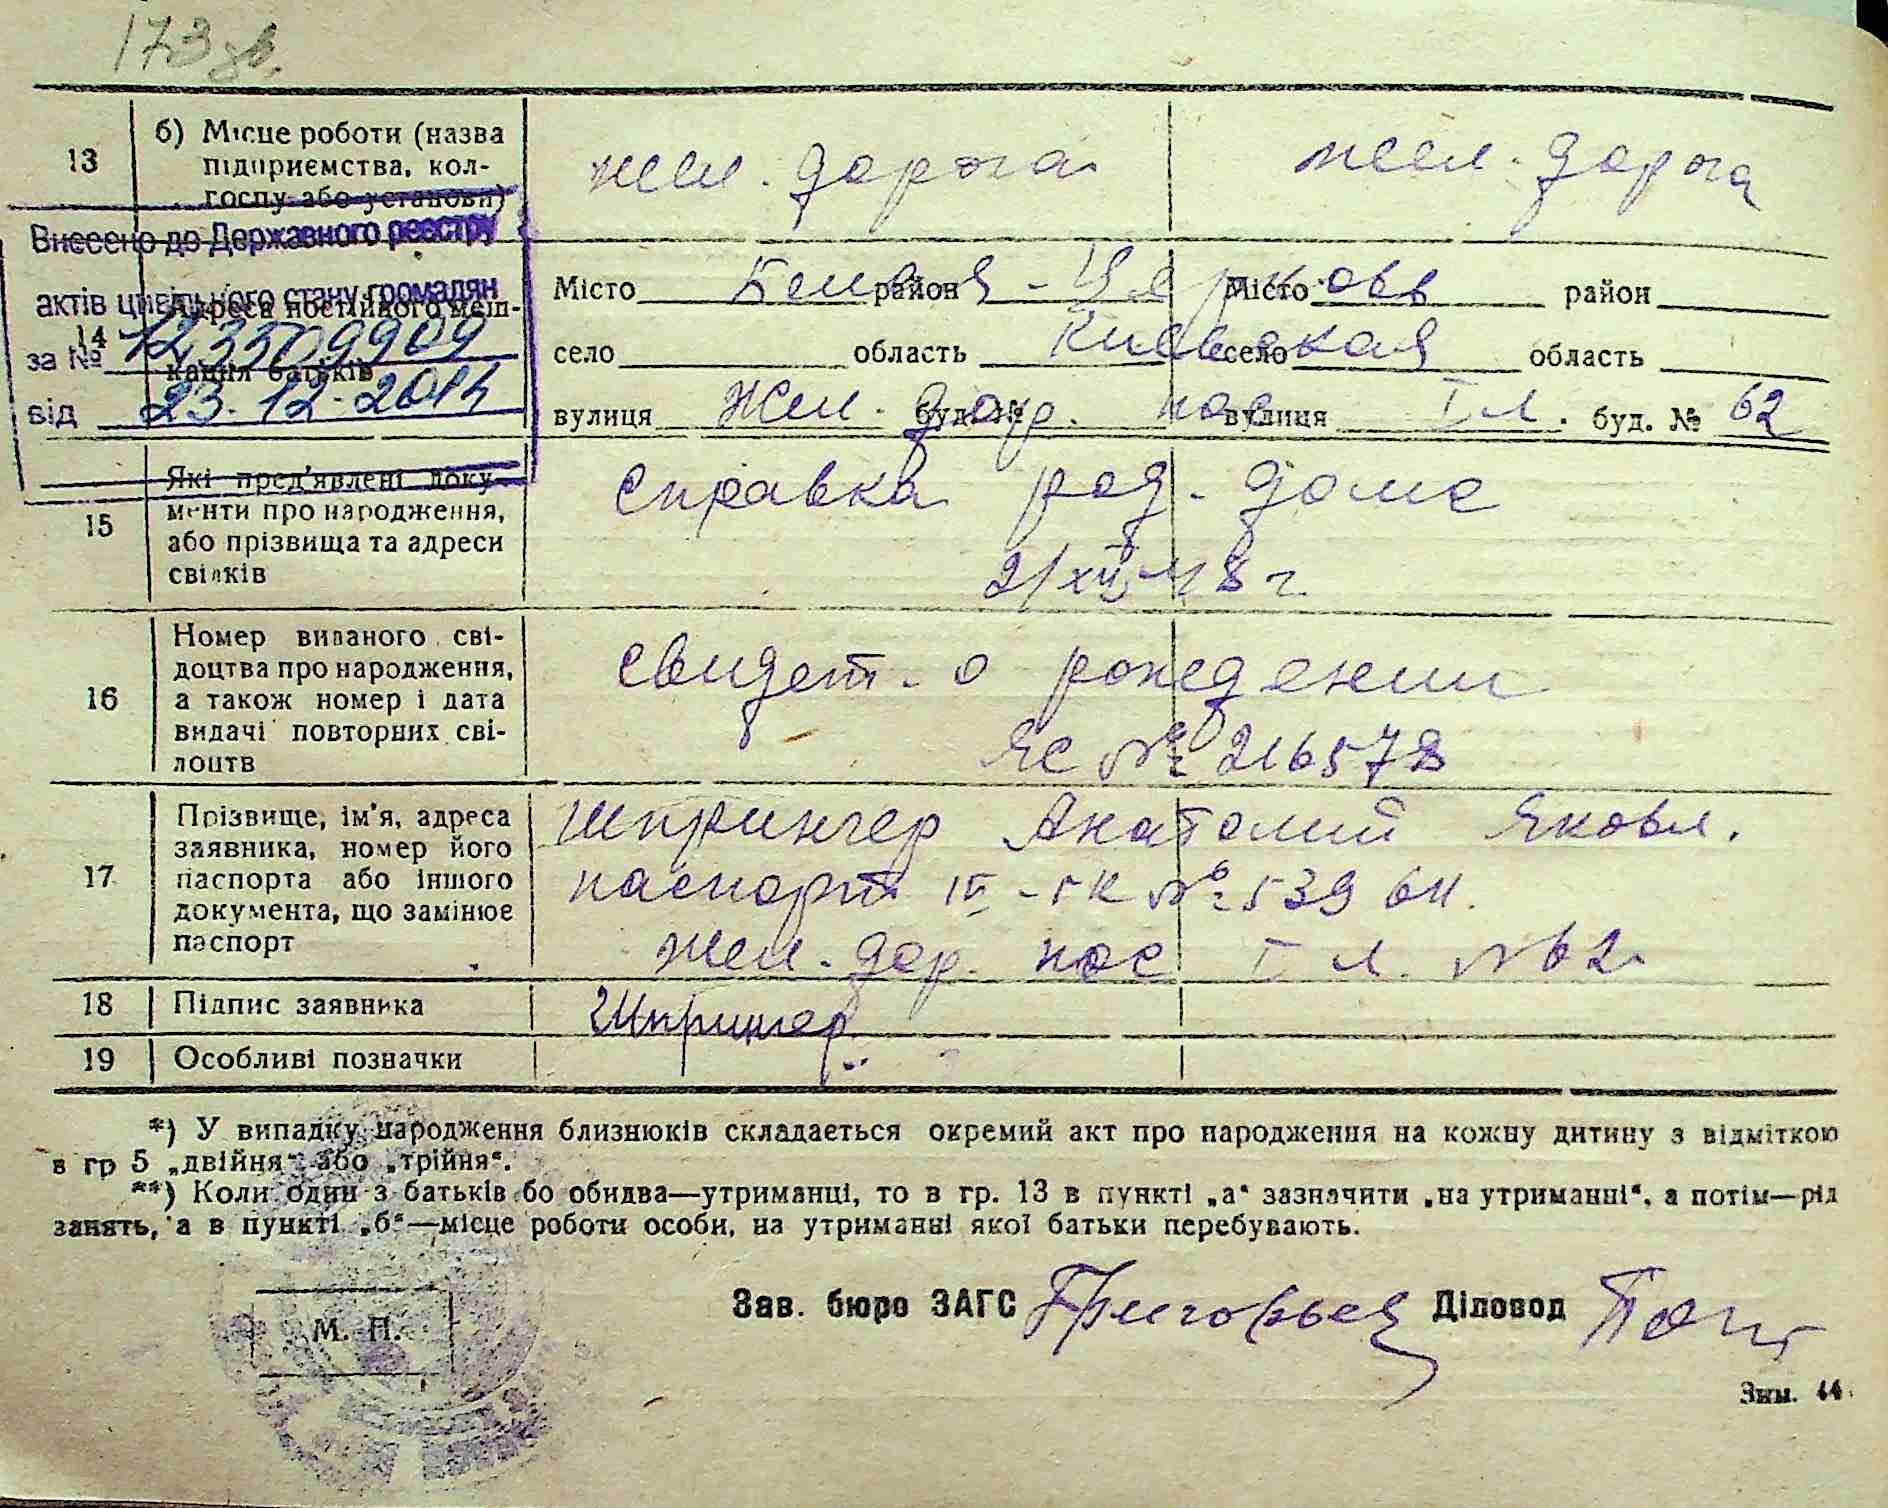 173 зв.
13 б) Місце роботи (назва підприємства, колгоспу або установи) жел. дорога жел. дорога
Внесено до Державного реєстру
актів цивільного стану громадян
за № 12,33509909
від 23.12.2014
14 Адреса постійного мешкання батьків
Місто Белая район - Церковь Місто район
село область Киевская село область
вулиця Жел. дор. буд. № пос вулиця I л. буд. № 62
15 Які пред'явлені документи про народження, або прізвища та адреси свідків
справка род. дома
2/XII 48 г.
16 Номер виданого свідоцтва про народження, а також номер і дата видачі повторних свідоцтв
свидет. о рождении
ЯС № 216578
17 Прізвище, ім'я, адреса заявника, номер його паспорта або іншого документа, що замінює паспорт
Шпрингер Анатолий Яковл.
паспорт IV-ГК № 539 611.
Жел. дор. пос I л. № 62
18 Підпис заявника Шпрингер
19 Особливі позначки
*) У випадку народження близнюків складається окремий акт про народження на кожну дитину з відміткою
в гр 5 „двійня“ або „трійня“.
**) Коли один з батьків бо обидва—утриманці, то в гр. 13 в пункті „а“ зазначити „на утриманні“, а потім—рід
занять, а в пункті „б“—місце роботи особи, на утриманні якої батьки перебувають.
М. П.
Зав. бюро ЗАГС Григорьев Діловод
Зим. 44